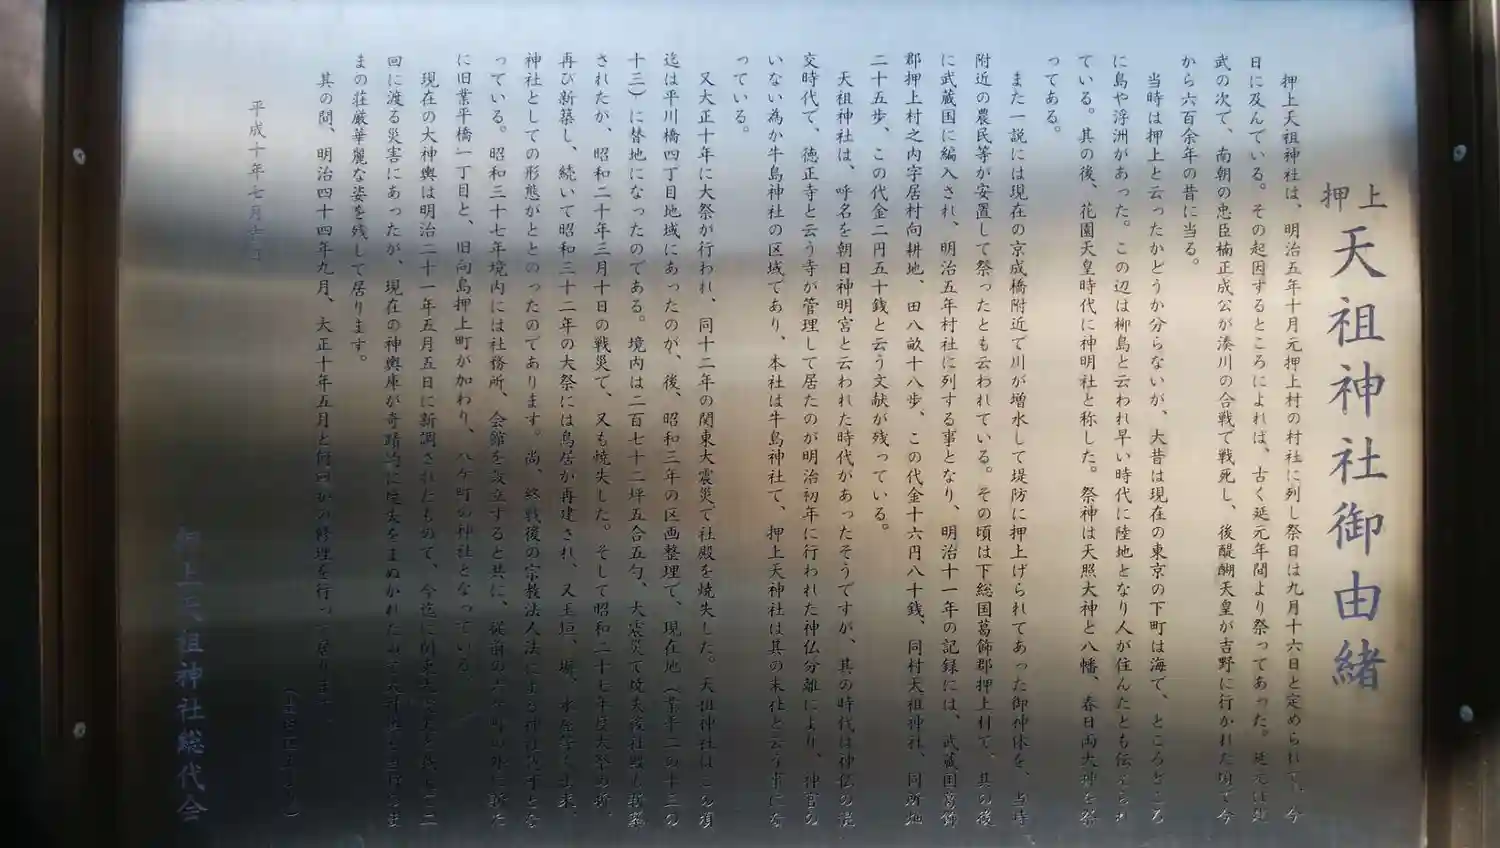 押上
天祖神社御由緒
押上天祖神社は、明治五年十月元押上村の村社に列し祭日は九月十六日と定められて、今
日に及んでいる。その起因するところによれば、古く延元年間より祭ってあった。延元は建
武の次で、南朝の忠臣楠正成公が湊川の合戦で戦死し、後醍醐天皇が吉野に行かれた頃で今
から六百余年の昔に当る。
当時は押上と云ったかどうか分らないが、大昔は現在の東京の下町は海で、ところどころ
に島や浮洲があった。この辺は柳島と云われ早い時代に陸地となり人が住んだとも伝えられ
ている。其の後、花園天皇時代に神明社と称した。祭神は天照大神と八幡、春日両大神を祭
ってある。
また一説には現在の京成橋附近で川が増水して堤防に押上げられてあった御神体を、当時
附近の農民等が安置して祭ったとも云われている。その頃は下総国葛飾郡押上村で、其の後
に武蔵国に編入され、明治五年村社に列する事となり、明治十一年の記録には、武蔵国葛飾
郡押上村之内字居村向耕地、田八畝十八歩、この代金十六円八十銭、同村天祖神社、同所地
二十五歩、この代金二円五十銭と云う文献が残っている。
天祖神社は、呼名を朝日神明宮と云われた時代があったそうですが、其の時代は神仏の混
交時代で、徳正寺と云う寺が管理して居たのが明治初年に行われた神仏分離により、神官の
いない為か牛島神社の区域であり、本社は牛島神社で、押上天祖神社は其の末社と云う事にな
っている。
又大正十年に大祭が行われ、同十二年の関東大震災で社殿を焼失した。天祖神社はこの頃
迄は平川橋四丁目地域にあったのが、後、昭和三年の区画整理で、現在地（業平二の十三の
十三）に替地になったのである。境内は二百七十二坪五合五勺、大震災で焼失後社殿も新築
されたが、昭和二十年三月十日の戦災で、又も焼失した。そして昭和二十七年度大祭の折、
再び新築し、続いて昭和三十二年の大祭には鳥居が再建され、又玉垣、塀、水屋等も出来、
神社としての形態がととのったのであります。尚、終戦後の宗教法人法による神社庁子とな
っている。昭和三十七年境内には社務所、会館を設立すると共に、従前の六ヶ町の外に新た
に旧業平橋一丁目と、旧向島押上町が加わり、八ヶ町の神社となっている。
現在の大神輿は明治二十一年五月五日に新調されたもので、今迄に関東大震災と戦災と二
回に渡る災害にあったが、現在の神輿庫が奇蹟的に焼失をまぬかれたので大神輿も当時のま
まの荘厳華麗な姿を残して居ります。
其の間、明治四十四年九月、大正十年五月と何回かの修理を行って居ります。
平成十年七月
押上天祖神社総代会